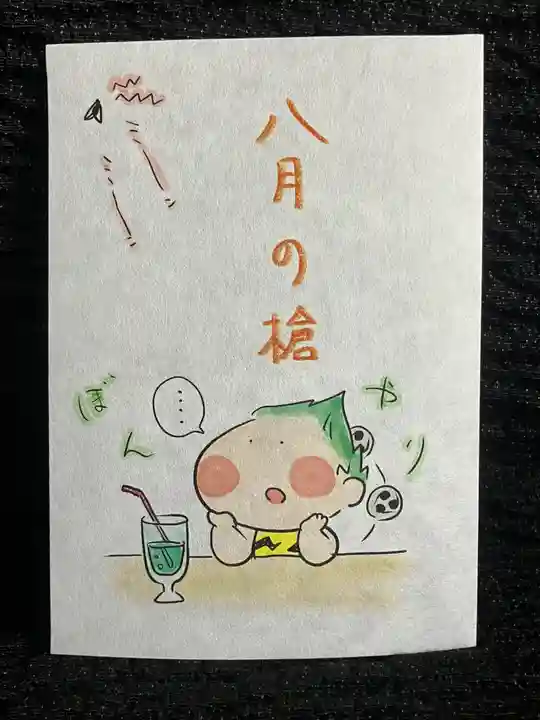 八月の槍
ぼん
やり
....